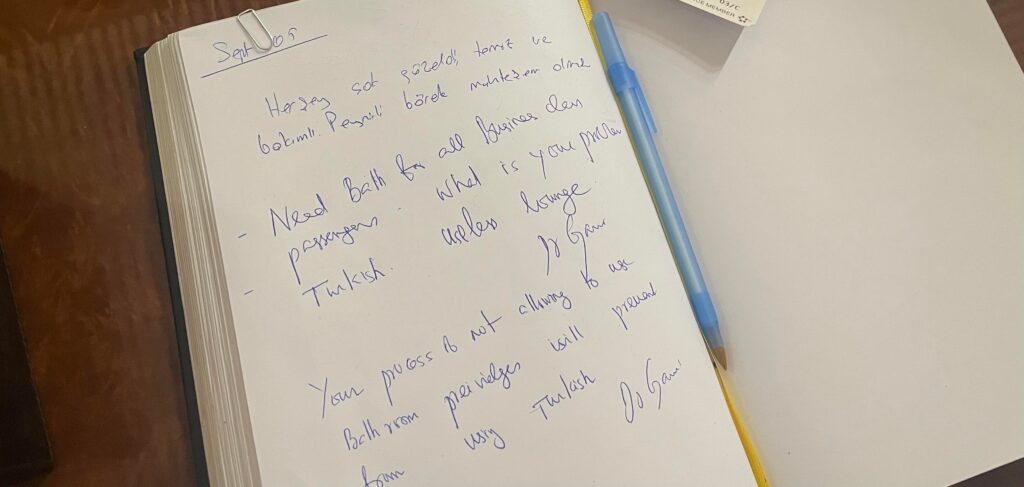 Sept 05
Herşey çok güzeldi, temiz ve
bakımlı. Peynirli börek muhteşem
- Need Bath for all Business class
passengers. What is your problem
- Turkish. useless lounge
Your process is not allowing to use
Bathroom
from using Turkish
03/C
MEMBER